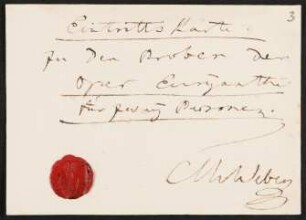 3
Eintritts Karte.
zu den Proben der
Oper Euryanthe
für zwey Personen.
CMvWeber